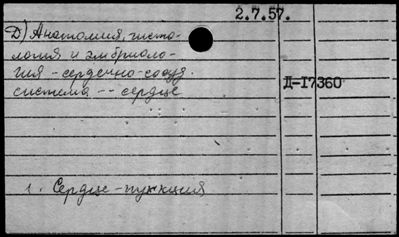 2.7.57.
Д) Анатомия, гисто-
логия и эмбриоло-
гия - сердечно-сосуд.
система -- сердце
Д-17360
1. Сердце - пункция